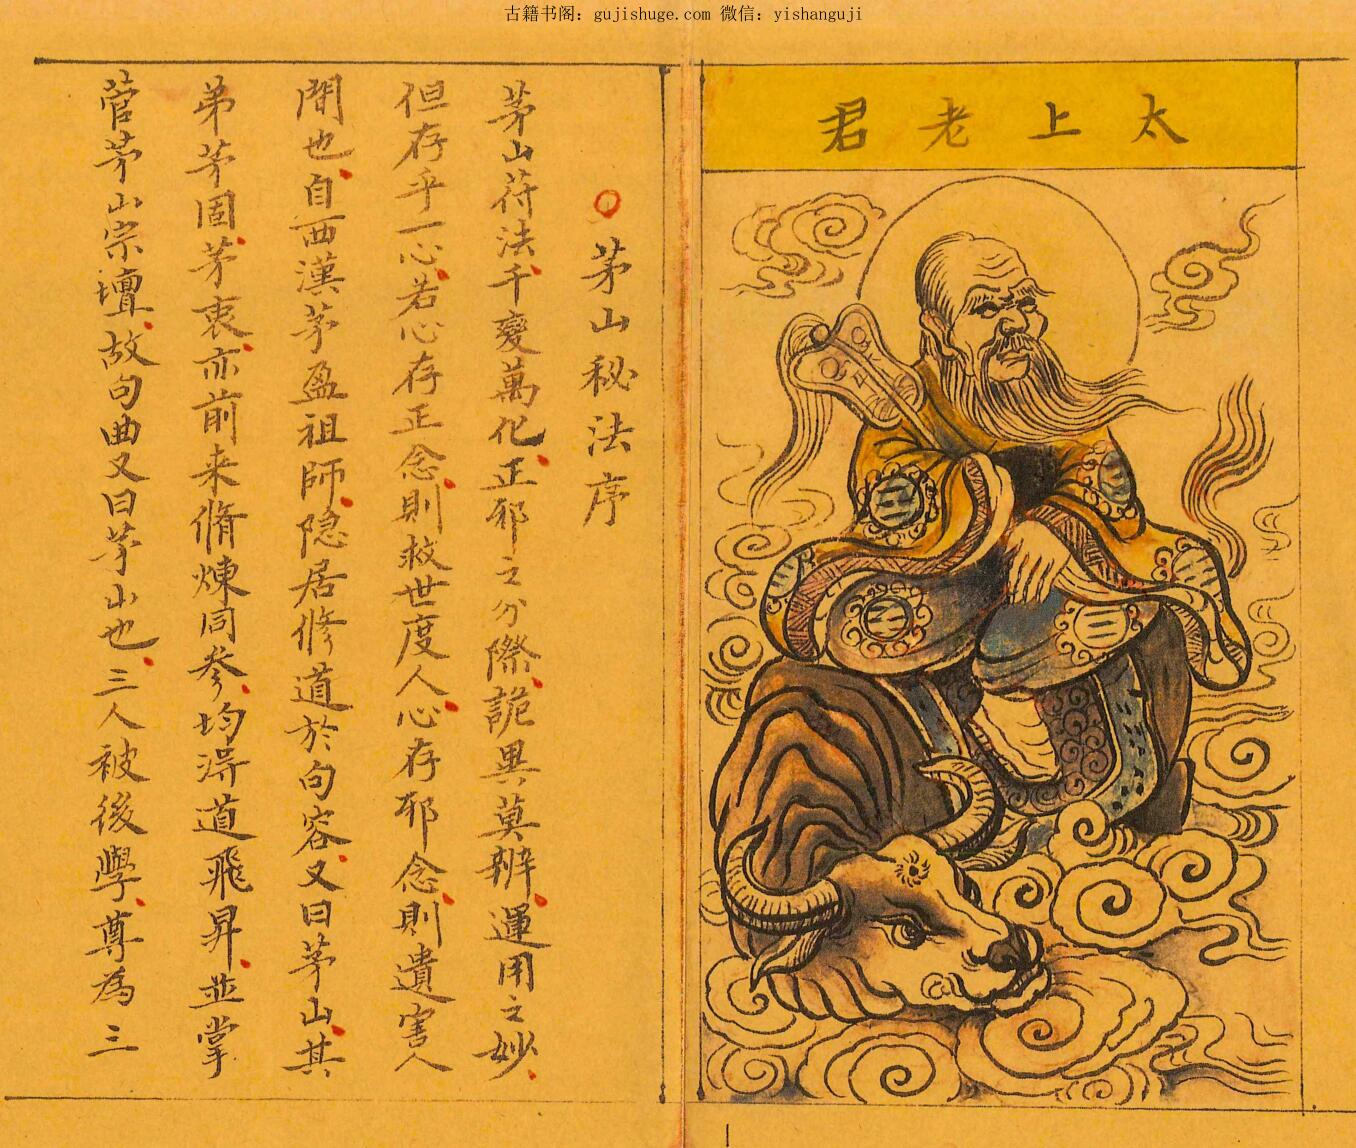 古籍书阁：gujishuge.com 微信：yishanguji
太上老君
茅山秘法序
茅山苻法千變萬化正邪之分際詭異莫辨運用之妙
但存乎一心若心存正念則救世度人心存邪念則遺害人
間也自西漢茅盈祖師隐居修道於句容又曰茅山其
弟茅固茅衷亦前来脩煉同参均淂道飛昇並掌
菅茅山宗壇故句曲又曰茅山也三人被後學尊為三